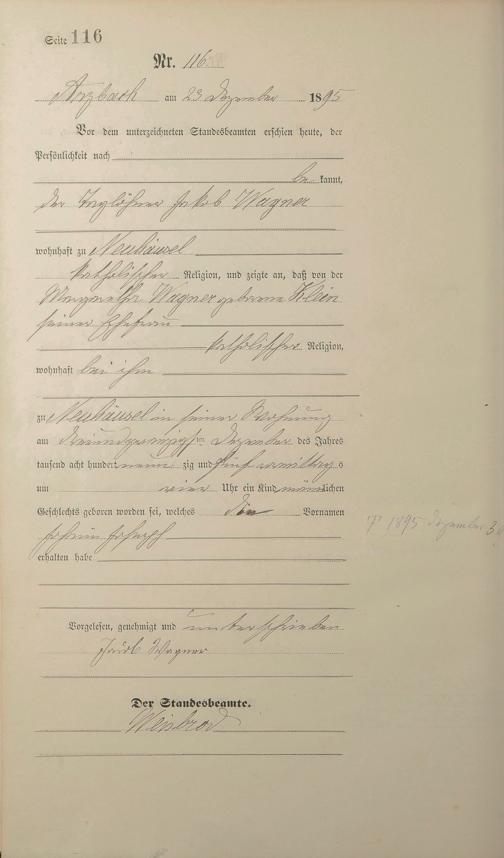 Seite 116
Nr. 116
Arzbach am 23 Dezember 1895
Vor dem unterzeichneten Standesbeamten erschien heute, der
Persönlichkeit nach
be kannt,
der Taglöhner Jakob Wagner
wohnhaft zu Neuhäusel
katholischer Religion, und zeigte an, daß von der
Margaretha Wagner geborene Klein
seiner Ehefrau
katholischer Religion,
wohnhaft bei ihm
zu Neuhäusel in seiner Wohnung
am ten Dezember des Jahres
tausend acht hundert neun zig und fünf vormittag s
um vier Uhr ein Kind männlichen
Geschlechts geboren worden sei, welches die Vornamen
Joseph
erhalten habe
† 1895 Dezember
Vorgelesen, genehmigt und unterschrieben
Jacob Wagner
Der Standesbeamte.
Weisbrod